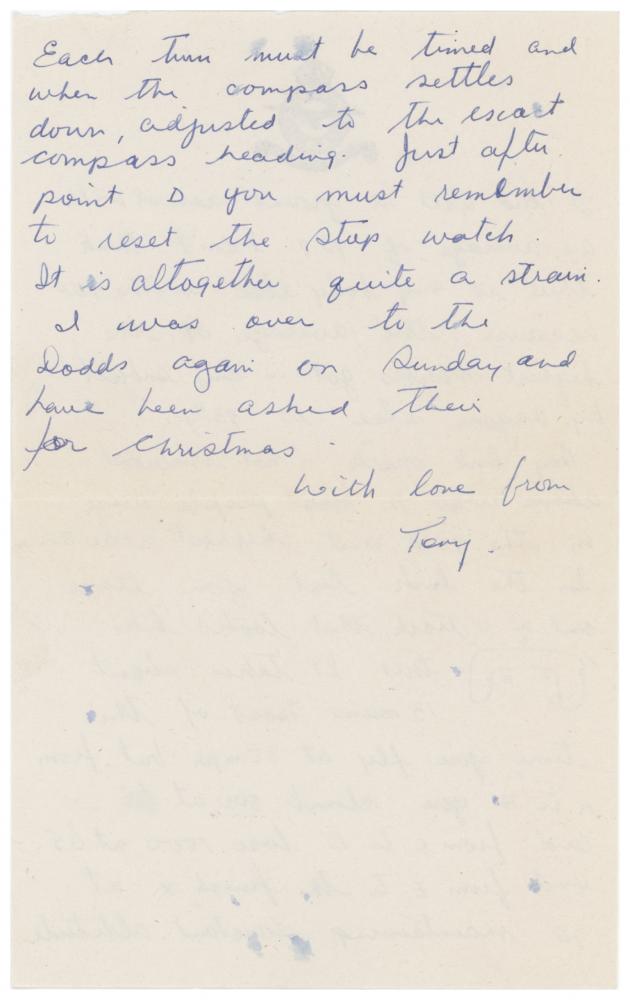 Each turn must be timed and
when the compass settles
down, adjusted to the exact
compass heading. Just after
point D you must remember
to reset the stop watch
It is altogether quite a strain.
I was over to the
Dodds again on Sunday and
have been asked their
for Christmas.
With love from
Tony.